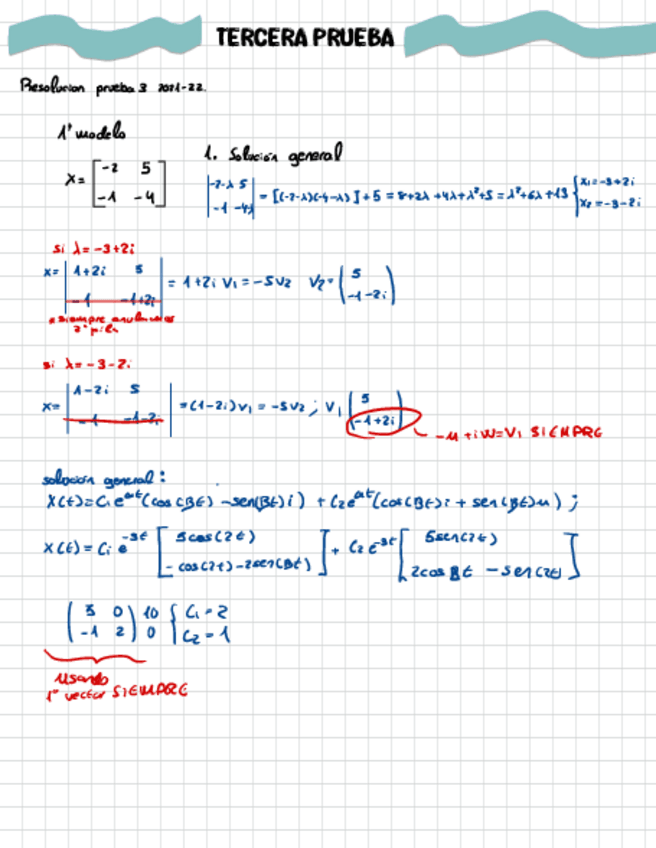 TERCERA PRUEBA
Resolucion prueba 3 2021-22.
1º modelo
1. Solución general
X= [-2 5
-1 -4]
|-2-λ 5
-1 -4-λ| = [(-2-λ)(-4-λ)]+5 = 8+2λ+4λ+λ²+5 = λ²+6λ+13 {x₁=-3+2i
x₂=-3-2i
si λ=-3+2i
X= |1+2i 5
-1 -1+2i| = 1+2i V₁=-5V₂ V₂= (5
-1-2i)
*siempre
si λ=-3-2i
X= |1-2i 5
-1 -1-2i| =(1-2i)V₁ = -5V₂; V₁ (5
-1+2i)
-u+iW=V₁ SIEMPRE
solución general:
X(t)=C₁e^at(cos(Bt) -sen(Bt)i) + C₂e^at(cos(Bt)i + sen(Bt)u);
X(t)= C₁ e^-3t [5cos(2t)
-cos(2t)-2sen(Bt)] + C₂e^-3t [5sen(2t)
2cos Bt -sen(2t)]
(5 0) 10 { C₁=2
(-1 2) 0 { C₂=1
Usando
1º vector SIEMPRE